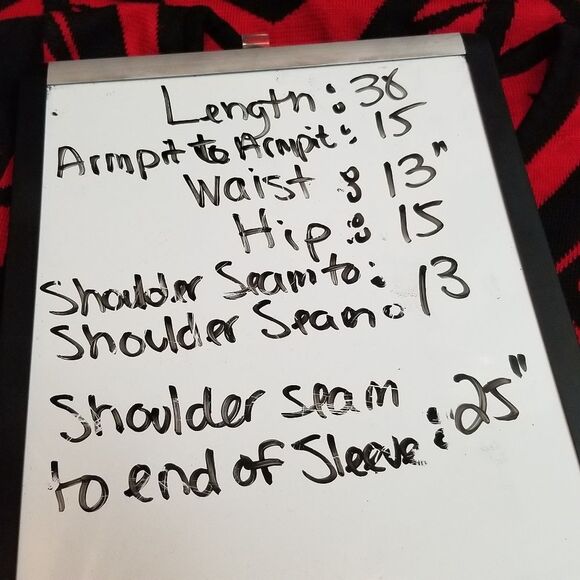 Length: 38
Armpit to Armpit: 15
Waist: 13"
Hip: 15
Shoulder Seam to: 13
Shoulder Seam
Shoulder seam
to end of Sleeve: 25"